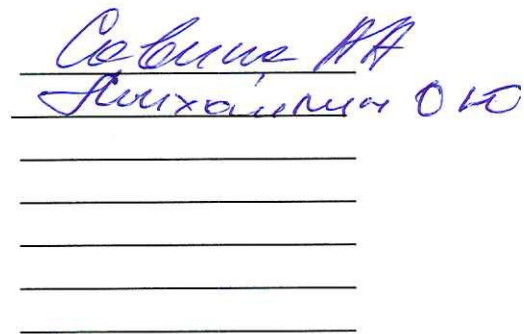 Савина АА
Михайлин О Ю